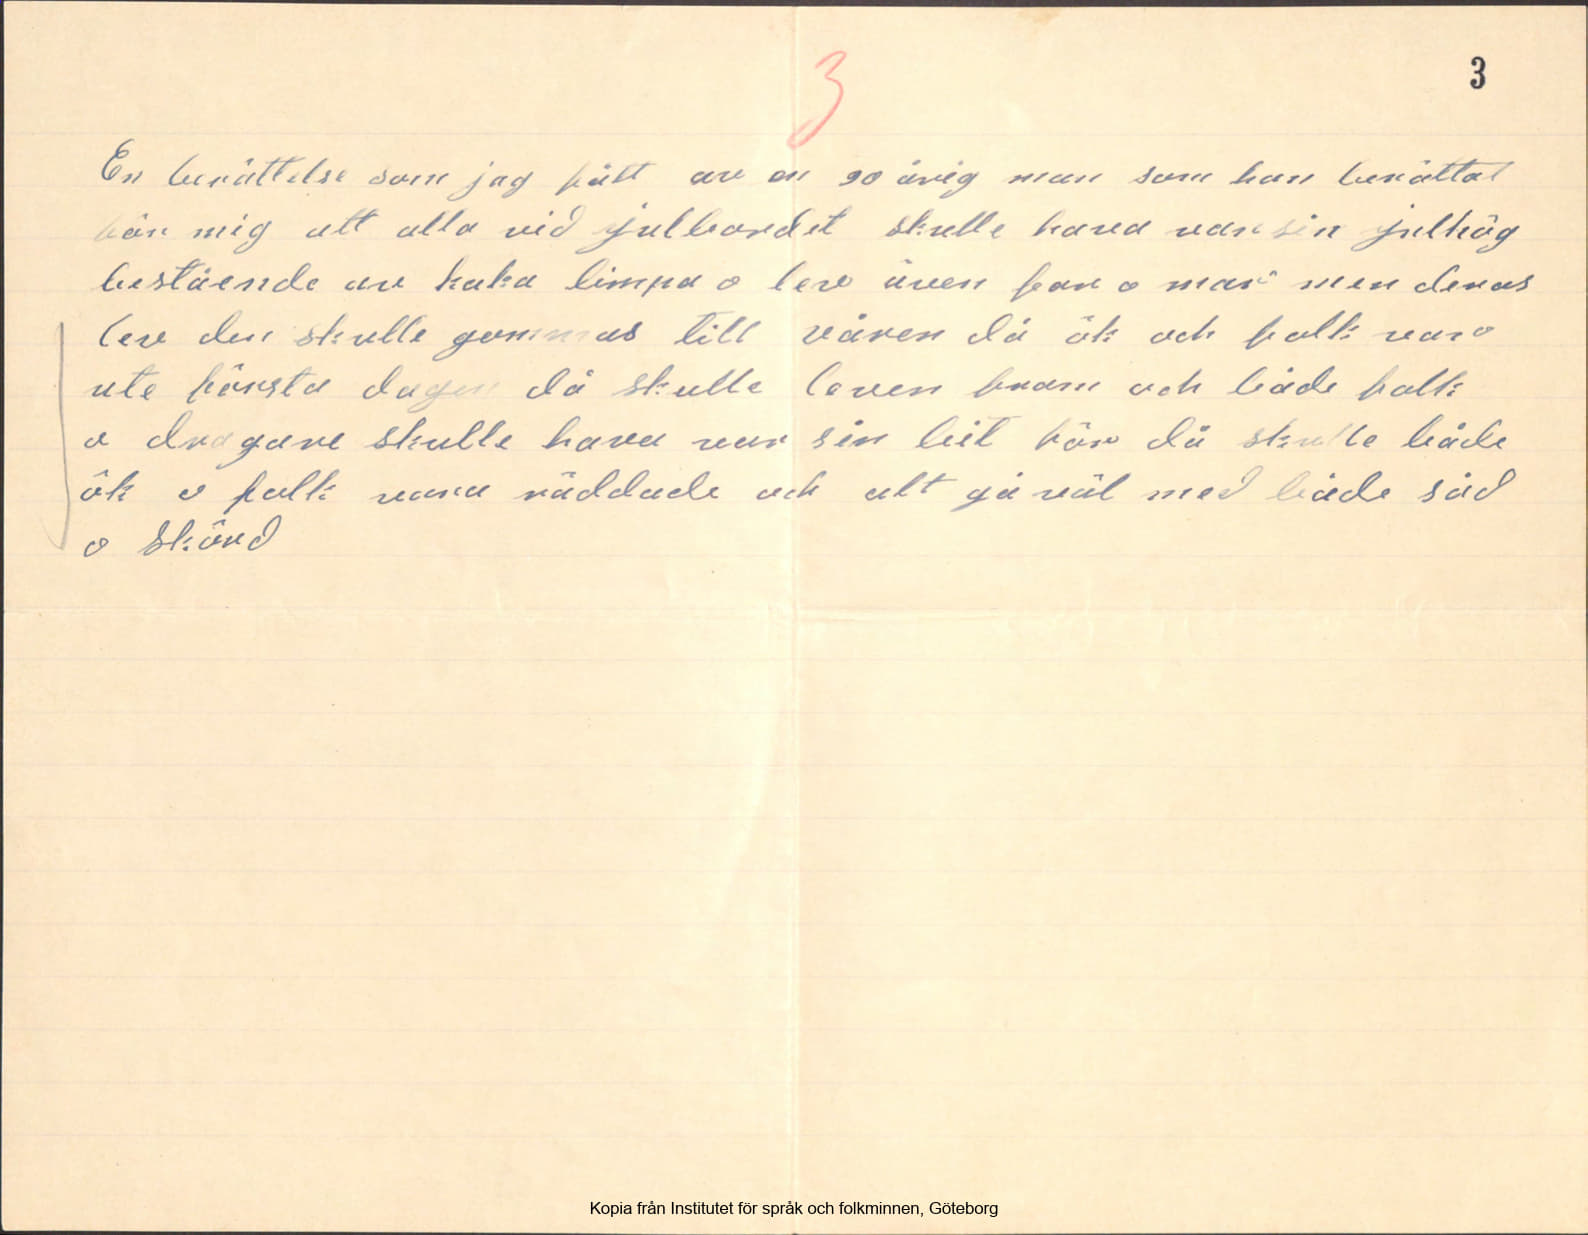 3
3
En berättelse som jag fått av en 90 årig man som han berättat
för mig att alla vid julbordet skulle hava varsin julhög
bestående av kaka limpa o lev även far o mor men deras
lev den skulle gommas till våren då ök och folk varo
ute första dagen då skulle leven fram och både folk
o dragare skulle hava var sin bit för då skulle både
ök o folk vara räddade och allt gå väl med både såd
o skörd
Kopia från Institutet för språk och folkminnen, Göteborg